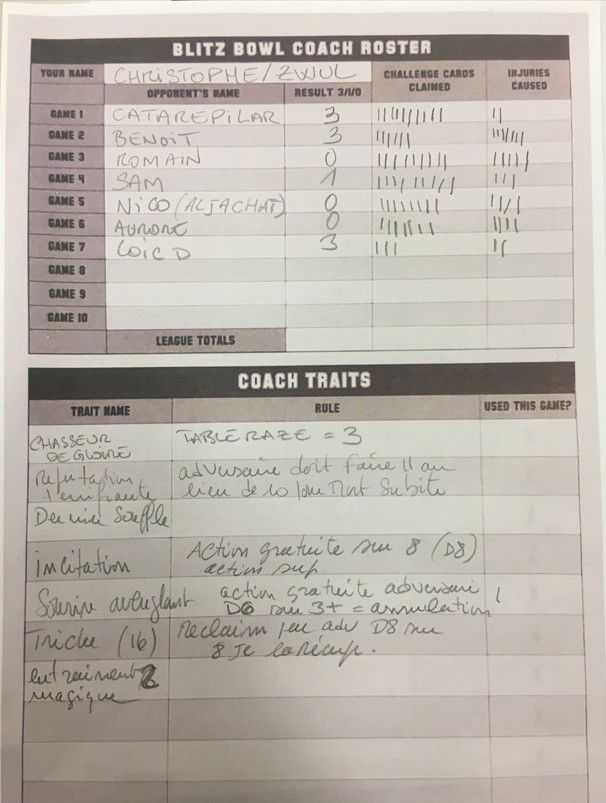 BLITZ BOWL COACH ROSTER
YOUR NAME CHRISTOPHE/ZWUL CHALLENGE CARDS CLAIMED INJURIES CAUSED
OPPONENT'S NAME RESULT 3/1/0
GAME 1 CATAREPILAR 3
GAME 2 BENOIT 3
GAME 3 ROMAIN 0
GAME 4 SAM 1
GAME 5 NICO (ALJACHAT) 0
GAME 6 AURORE 0
GAME 7 LOIC D 3
GAME 8
GAME 9
GAME 10
LEAGUE TOTALS
COACH TRAITS
TRAIT NAME RULE USED THIS GAME?
CHASSEUR TABLE RAZE = 3
DE GLOIRE
Réputation adversaire doit faire 11 au
lieu de 10 pour Mort Subite
Dernier Souffle
incitation Action gratuite sur 8 (D8)
action sup
Sourire aveuglant action gratuite adversaire /
D6 sur 3+ = annulation
Triche (16) Reclaim par adv D8 sur
8 Je la récup.
entrainement 2
magique